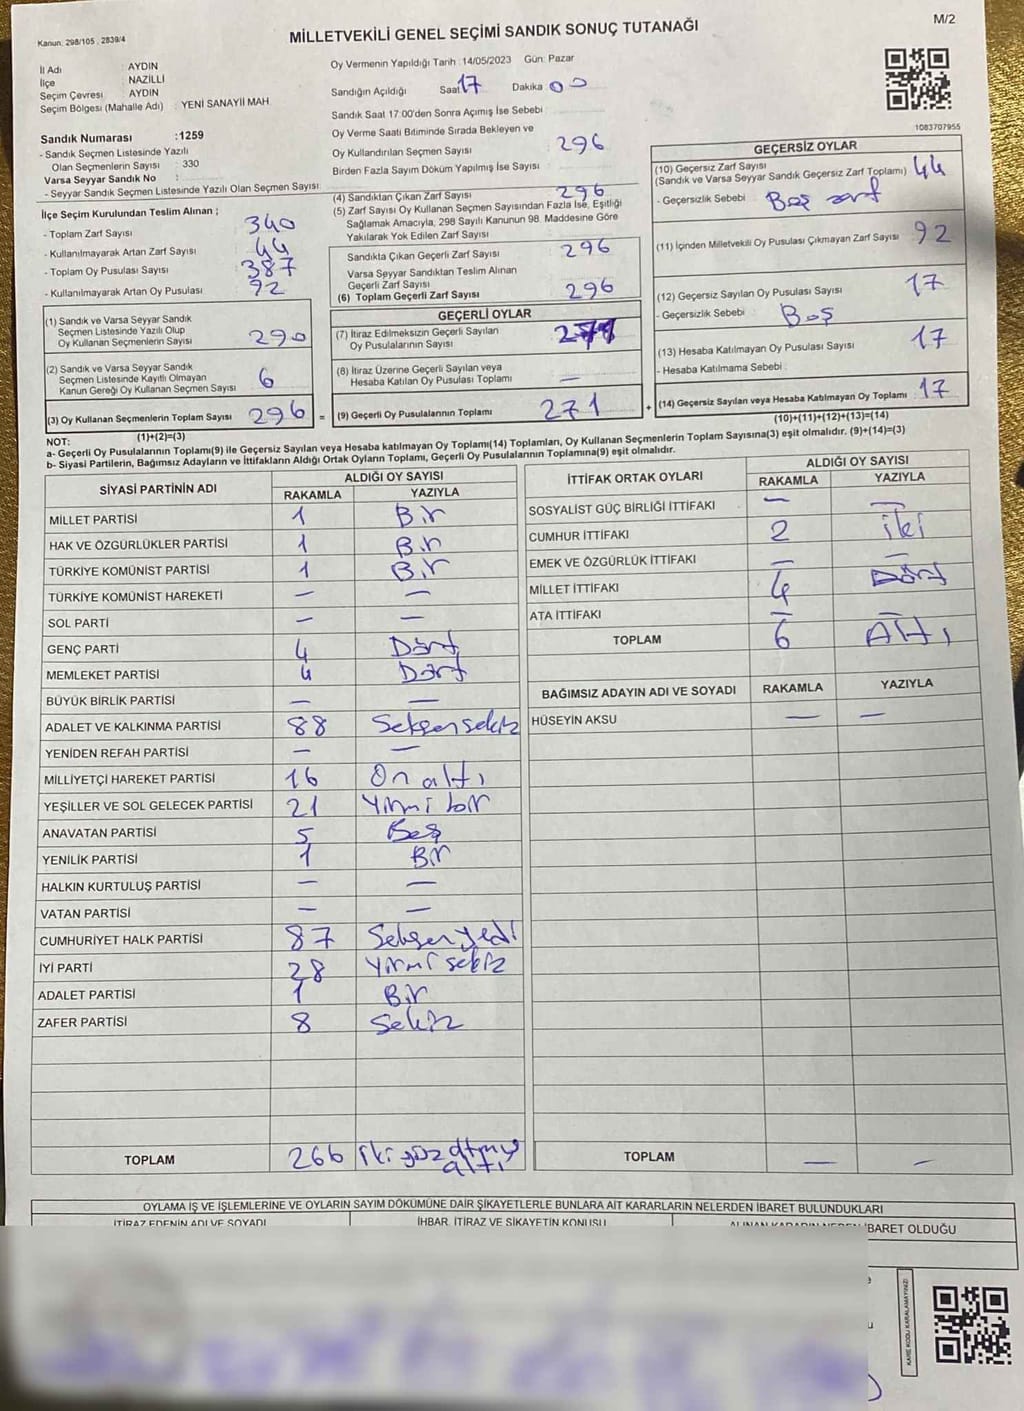 M/2
Kanun: 298/105 , 2839/4
MİLLETVEKİLİ GENEL SEÇİMİ SANDIK SONUÇ TUTANAĞI
İl Adı : AYDIN
İlçe : NAZİLLİ
Seçim Çevresi : AYDIN
Seçim Bölgesi (Mahalle Adı) : YENİ SANAYİİ MAH.
Sandık Numarası :1259
- Sandık Seçmen Listesinde Yazılı
Olan Seçmenlerin Sayısı : 330
Varsa Seyyar Sandık No :
- Seyyar Sandık Seçmen Listesinde Yazılı Olan Seçmen Sayısı:
İlçe Seçim Kurulundan Teslim Alınan ;
- Toplam Zarf Sayısı : 340
- Kullanılmayarak Artan Zarf Sayısı : 44
- Toplam Oy Pusulası Sayısı : 387
- Kullanılmayarak Artan Oy Pusulası : 92
(1) Sandık ve Varsa Seyyar Sandık
Seçmen Listesinde Yazılı Olup
Oy Kullanan Seçmenlerin Sayısı : 290
(2) Sandık ve Varsa Seyyar Sandık
Seçmen Listesinde Kayıtlı Olmayan
Kanun Gereği Oy Kullanan Seçmen Sayısı : 6
(3) Oy Kullanan Seçmenlerin Toplam Sayısı : 296 =
(1)+(2)=(3)
Oy Vermenin Yapıldığı Tarih :14/05/2023 Gün: Pazar
Sandığın Açıldığı Saat 17 Dakika 00
Sandık Saat 17:00'den Sonra Açımış İse Sebebi :
Oy Verme Saati Bitiminde Sırada Bekleyen ve
Oy Kullandırılan Seçmen Sayısı : 296
Birden Fazla Sayım Döküm Yapılmış İse Sayısı :
(4) Sandıktan Çıkan Zarf Sayısı : 296
(5) Zarf Sayısı Oy Kullanan Seçmen Sayısından Fazla İse, Eşitliği
Sağlamak Amacıyla, 298 Sayılı Kanunun 98. Maddesine Göre
Yakılarak Yok Edilen Zarf Sayısı :
Sandıkta Çıkan Geçerli Zarf Sayısı : 296
Varsa Seyyar Sandıktan Teslim Alınan
Geçerli Zarf Sayısı :
(6) Toplam Geçerli Zarf Sayısı : 296
GEÇERLİ OYLAR
(7) İtiraz Edilmeksizin Geçerli Sayılan
Oy Pusulalarının Sayısı : 271
(8) İtiraz Üzerine Geçerli Sayılan veya
Hesaba Katılan Oy Pusulası Toplamı : —
(9) Geçerli Oy Pusulalarının Toplamı : 271 +
1083707955
GEÇERSİZ OYLAR
(10) Geçersiz Zarf Sayısı : 44
(Sandık ve Varsa Seyyar Sandık Geçersiz Zarf Toplamı)
- Geçersizlik Sebebi : Boş zarf
(11) İçinden Milletvekili Oy Pusulası Çıkmayan Zarf Sayısı : 92
(12) Geçersiz Sayılan Oy Pusulası Sayısı : 17
- Geçersizlik Sebebi : Boş
(13) Hesaba Katılmayan Oy Pusulası Sayısı : 17
- Hesaba Katılmama Sebebi :
(14) Geçersiz Sayılan veya Hesaba Katılmayan Oy Toplamı : 17
(10)+(11)+(12)+(13)=(14)
NOT:
a- Geçerli Oy Pusulalarının Toplamı(9) ile Geçersiz Sayılan veya Hesaba katılmayan Oy Toplamı(14) Toplamları, Oy Kullanan Seçmenlerin Toplam Sayısına(3) eşit olmalıdır. (9)+(14)=(3)
b- Siyasi Partilerin, Bağımsız Adayların ve İttifakların Aldığı Ortak Oyların Toplamı, Geçerli Oy Pusulalarının Toplamına(9) eşit olmalıdır.
SİYASİ PARTİNİN ADI ALDIĞI OY SAYISI
RAKAMLA YAZIYLA
MİLLET PARTİSİ 1 Bir
HAK VE ÖZGÜRLÜKLER PARTİSİ 1 Bir
TÜRKİYE KOMÜNİST PARTİSİ 1 Bir
TÜRKİYE KOMÜNİST HAREKETİ — —
SOL PARTİ — —
GENÇ PARTİ 4 Dört
MEMLEKET PARTİSİ 4 Dört
BÜYÜK BİRLİK PARTİSİ — —
ADALET VE KALKINMA PARTİSİ 88 Seksen sekiz
YENİDEN REFAH PARTİSİ — —
MİLLİYETÇİ HAREKET PARTİSİ 16 On altı
YEŞİLLER VE SOL GELECEK PARTİSİ 21 Yirmi bir
ANAVATAN PARTİSİ 5 Beş
YENİLİK PARTİSİ 1 Bir
HALKIN KURTULUŞ PARTİSİ — —
VATAN PARTİSİ — —
CUMHURİYET HALK PARTİSİ 87 Seksen yedi
İYİ PARTİ 28 Yirmi sekiz
ADALET PARTİSİ 1 Bir
ZAFER PARTİSİ 8 Sekiz
TOPLAM 266 iki yüz atmış altı
İTTİFAK ORTAK OYLARI ALDIĞI OY SAYISI
RAKAMLA YAZIYLA
SOSYALİST GÜÇ BİRLİĞİ İTTİFAKI — —
CUMHUR İTTİFAKI 2 iki
EMEK VE ÖZGÜRLÜK İTTİFAKI — —
MİLLET İTTİFAKI 4 Dört
ATA İTTİFAKI — —
TOPLAM 6 Altı
BAĞIMSIZ ADAYIN ADI VE SOYADI RAKAMLA YAZIYLA
HÜSEYİN AKSU — —
TOPLAM — —
OYLAMA İŞ VE İŞLEMLERİNE VE OYLARIN SAYIM DÖKÜMÜNE DAİR ŞİKAYETLERLE BUNLARA AİT KARARLARIN NELERDEN İBARET BULUNDUKLARI
İTİRAZ EDENİN ADI VE SOYADI İHBAR, İTİRAZ VE ŞİKAYETİN KONUSU ALINAN KARARIN NEDEN İBARET OLDUĞU
KARE KODU KARALAMAYINIZ!